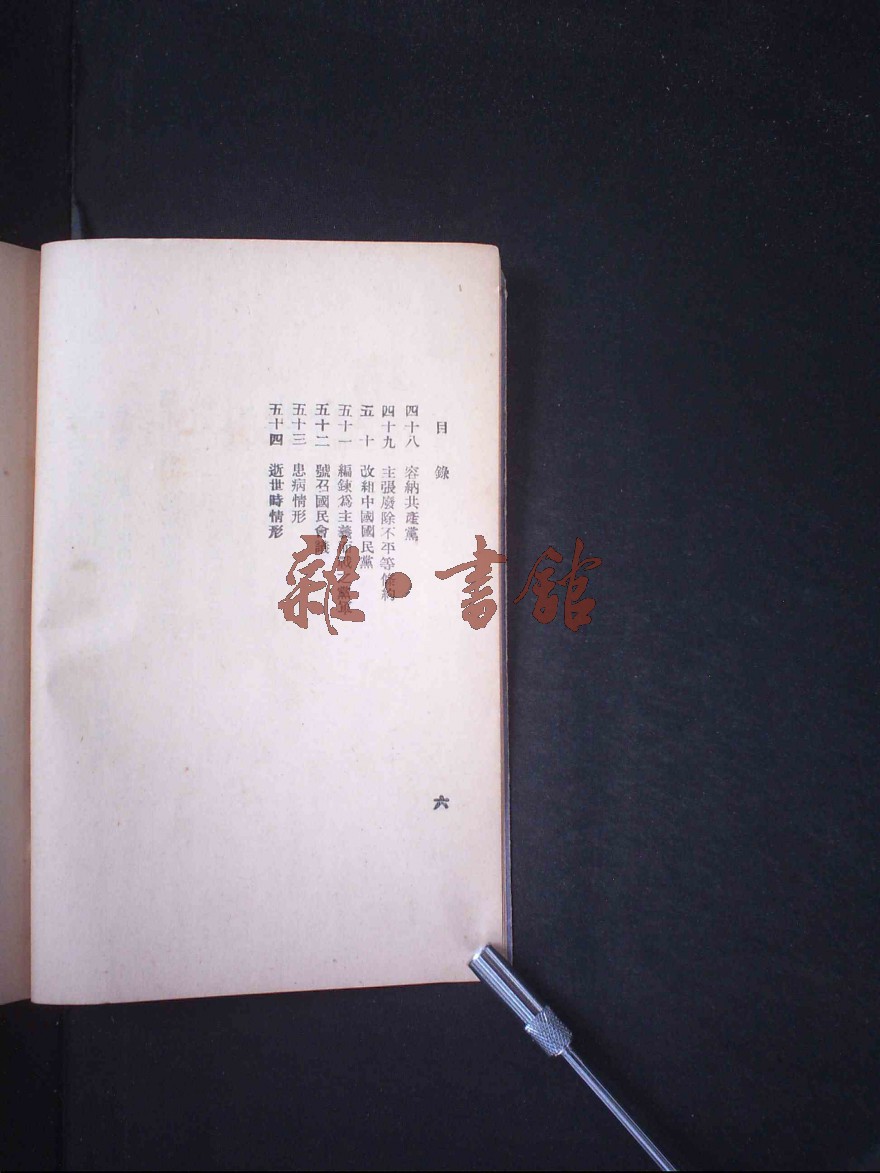 目錄
四十八 容納共產黨
四十九 主張廢除不平等條約
五十 改組中國國民黨
五十一 編鍊爲主義而戰之黨軍
五十二 號召國民會議
五十三 患病情形
五十四 逝世時情形
六
雜·書館